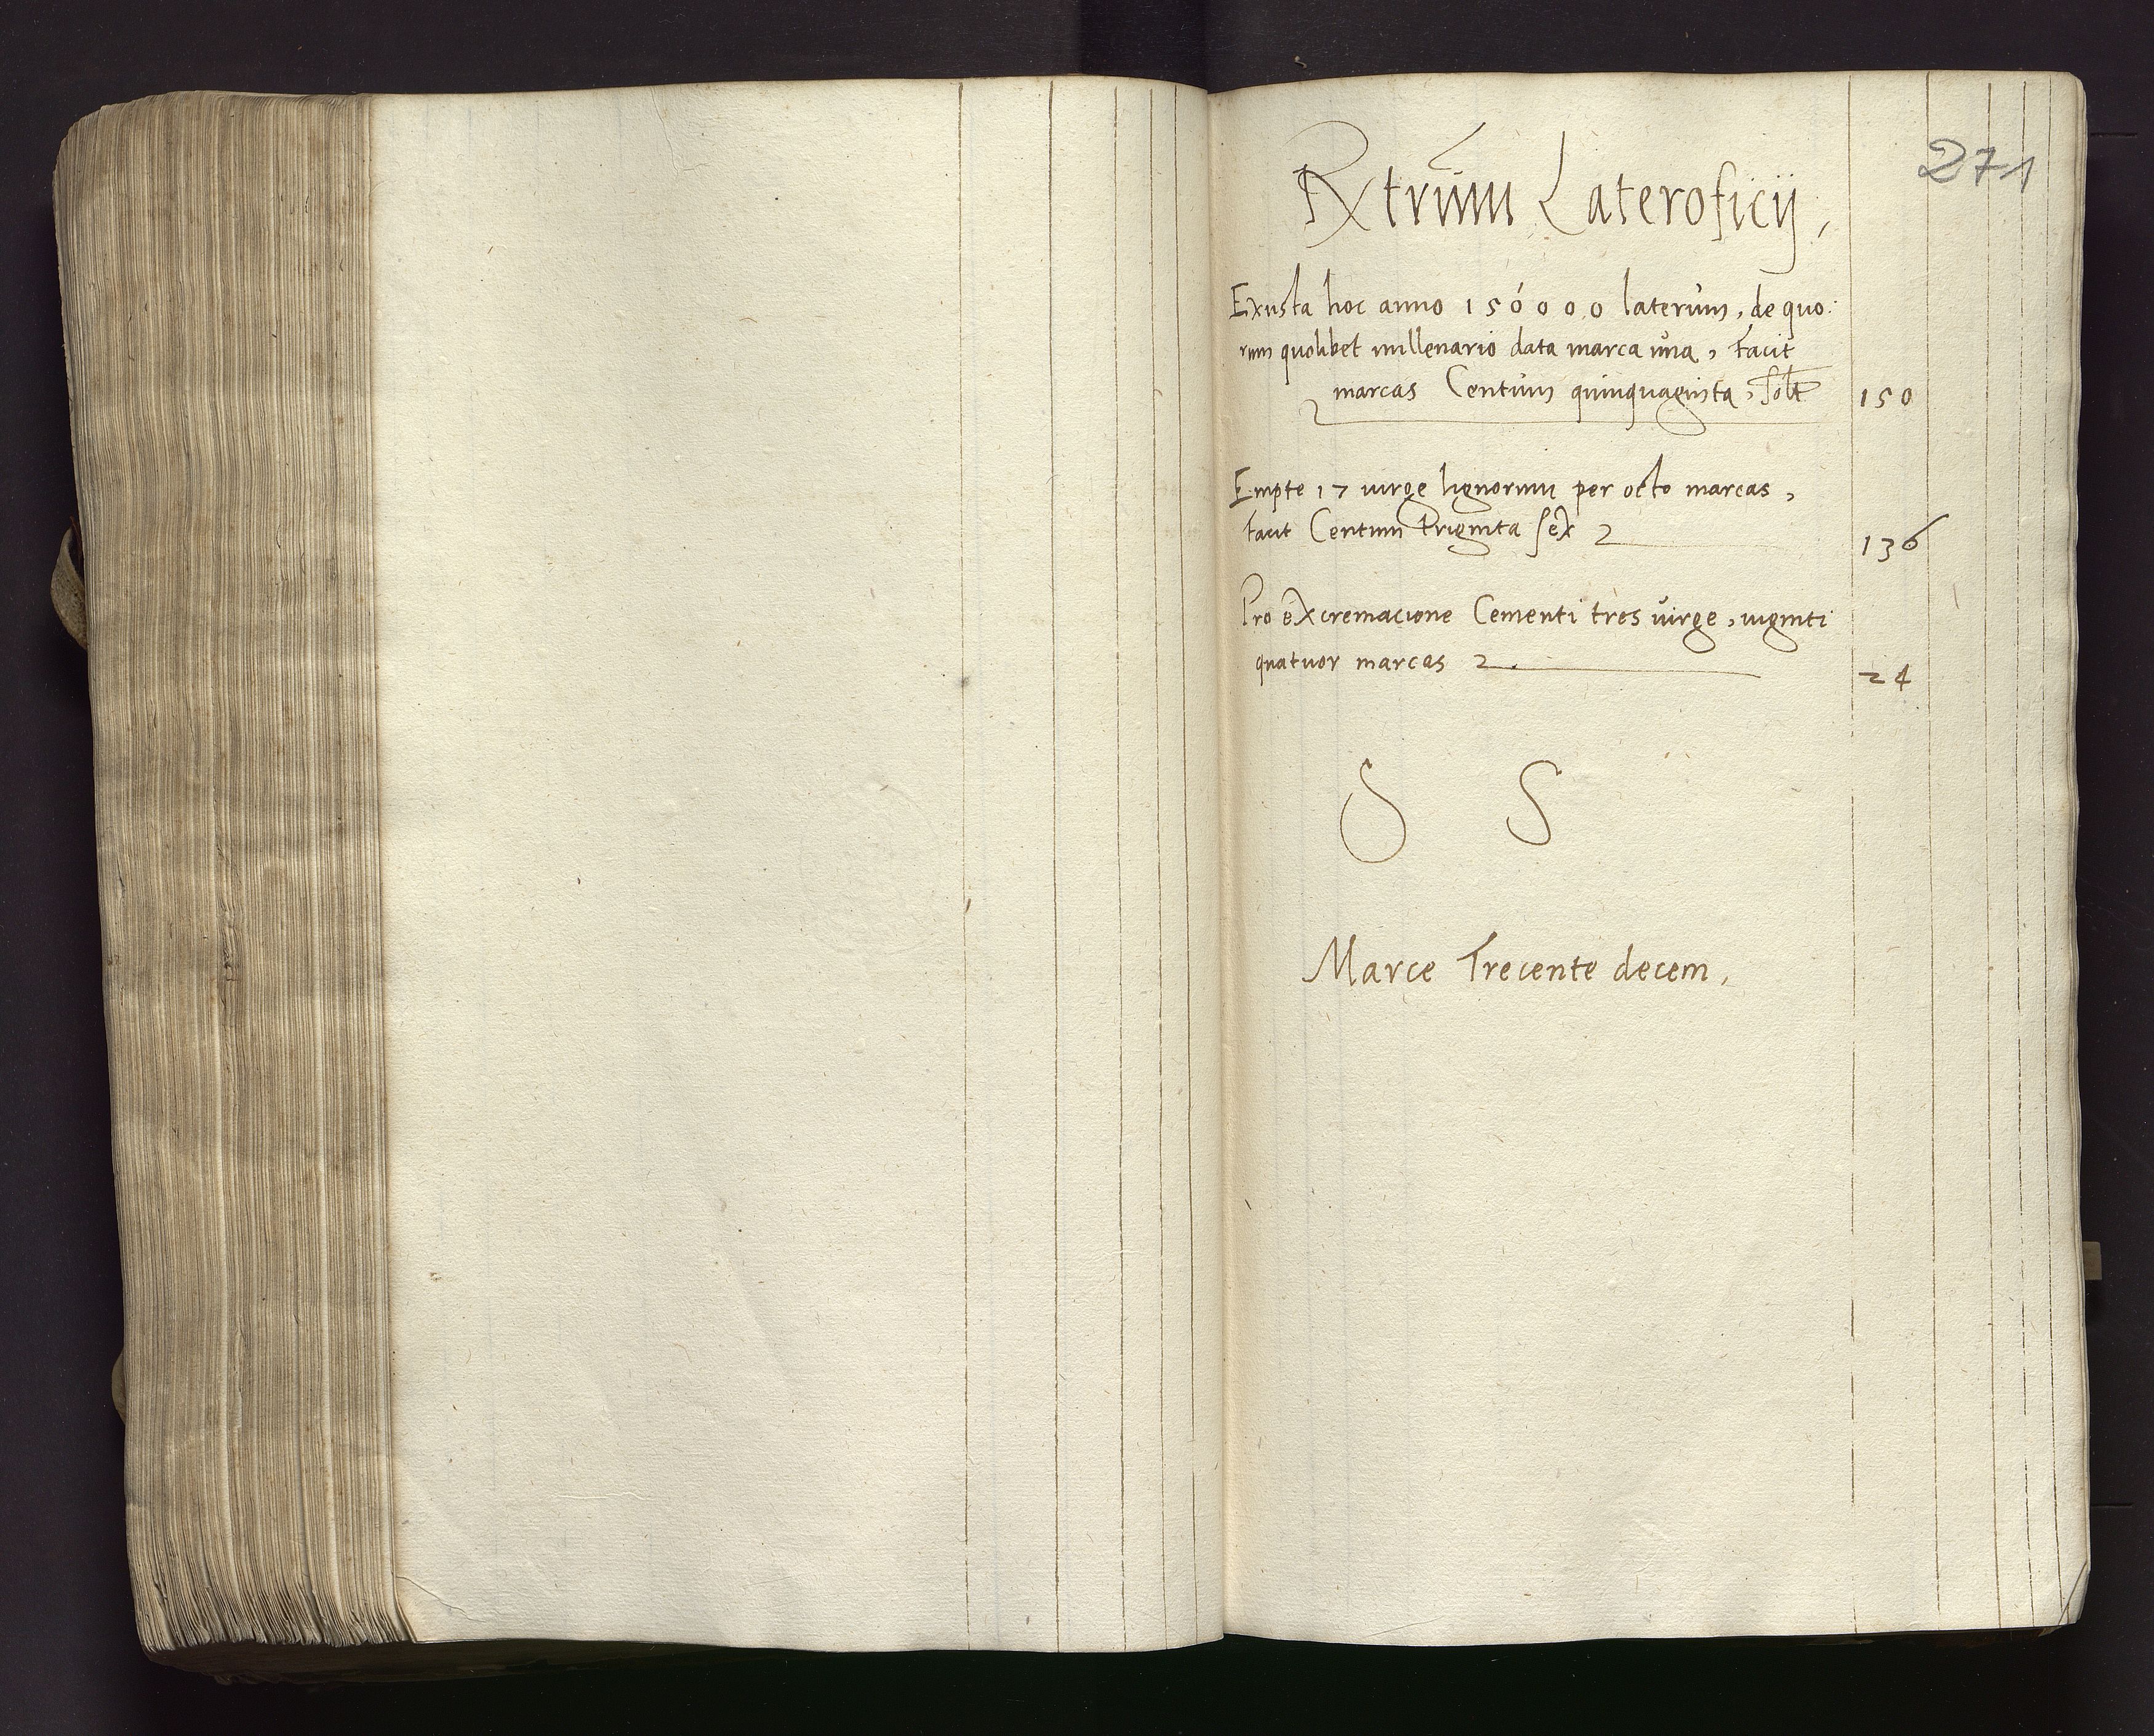 271
Extrum Lateroficij,
Exusta hoc anno 150000 laterum, de quo:
rum quolibet millenario data marca una, facit
marcas Centum quinquaginta, solt 150
Empte 17 virge lignorum per octo marcas,
facit Centum triginta sex 136
Pro excremacione Cementi tres virge, viginti
quatuor marcas 24
S S
Marce Trecente decem,